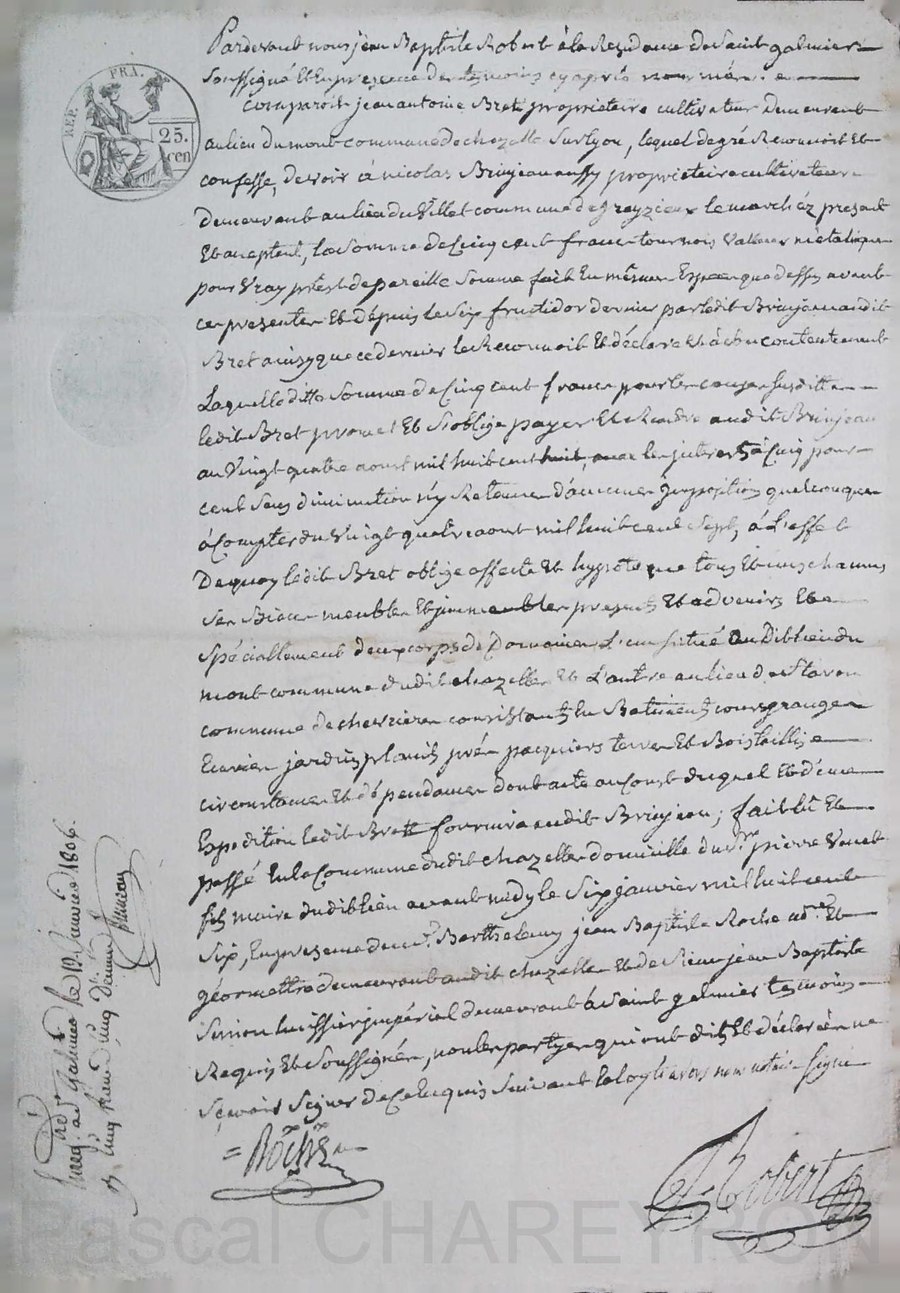 REP. FRA.
25.
cen
Pardevant nous jean Baptiste Robert à la Residance de Saint galmier
Soussigné Et En presence des temoins cy après nommés
Comparoit jean antoine Bret proprietaire cultivateur demeurant
au lieu du mont commune de chazelle Sur lyon, lequel de gré Reconnoit Et
confesse, devoir à nicolas Brunjean aussy proprietaire cultivateur
demeurant au lieu du Villet commune de grezieux le marché present
Et acceptant, la Somme de Cinq cent francs tournois Valleur metalique
pour Vray prest de pareille Somme fait En mêmes Especes que dessus avant
ces presentes Et dépuis le Six fructidor dernier par ledit Brunjean audit
Bret ainsy que ce dernier le Reconnoit Et déclare Et à son contentement
Laquelle ditte Somme de Cinq cent francs pour les causes Susdittes
ledit Bret promet Et S'oblige payer Et Rendre audit Brunjean
au Vingt quatre aoust mil huit cent huit, avec les interets à Cinq pour
cent Sans diminution n'y Retenue d'aucunes impositions quelconques
à Compter du Vingt quatre aoust mil huit cent Sept, à L'effet
De quoy ledit Bret oblige affecte Et hypoteque tous Et uns chacuns
Ses Biens meubles Et immeubles presents Et advenirs Et
Spéciallement deux corps de Domaines L'un Situé au dit lieu du
mont commune dudit chazelles Et L'autre au lieu de
commune de chevrières consistants En Batiments cours granges
Ecuries jardins plants prés pacquiers terres Et Bois taillis
circonstances Et dépendances dont acte au Coust duquel Et d'une
Expedition ledit Brett fournira audit Brunjean; fait lû Et
passé En la Commune dudit chazelles domicille du Sr. pierre
fils maire dudit lieu avant midy le Six janvier mil huit cent
Six, En presence de mr. Barthelemy jean Baptiste Roche nore. Et
géometre demeurant audit chazelles Et de Sieur jean Baptiste
Simon huissier imperial demeurant à Saint galmier temoins
Requis Et Soussignés, non les partyes qui ont dit Et déclaré ne
Sçavoir Signer de Ce Enquis Suivant la loy avons nous notaire Signé
Roche
Robert
Enreg. à St Galmier le 12 Janvier 1806.
Pascal CHAREYRON